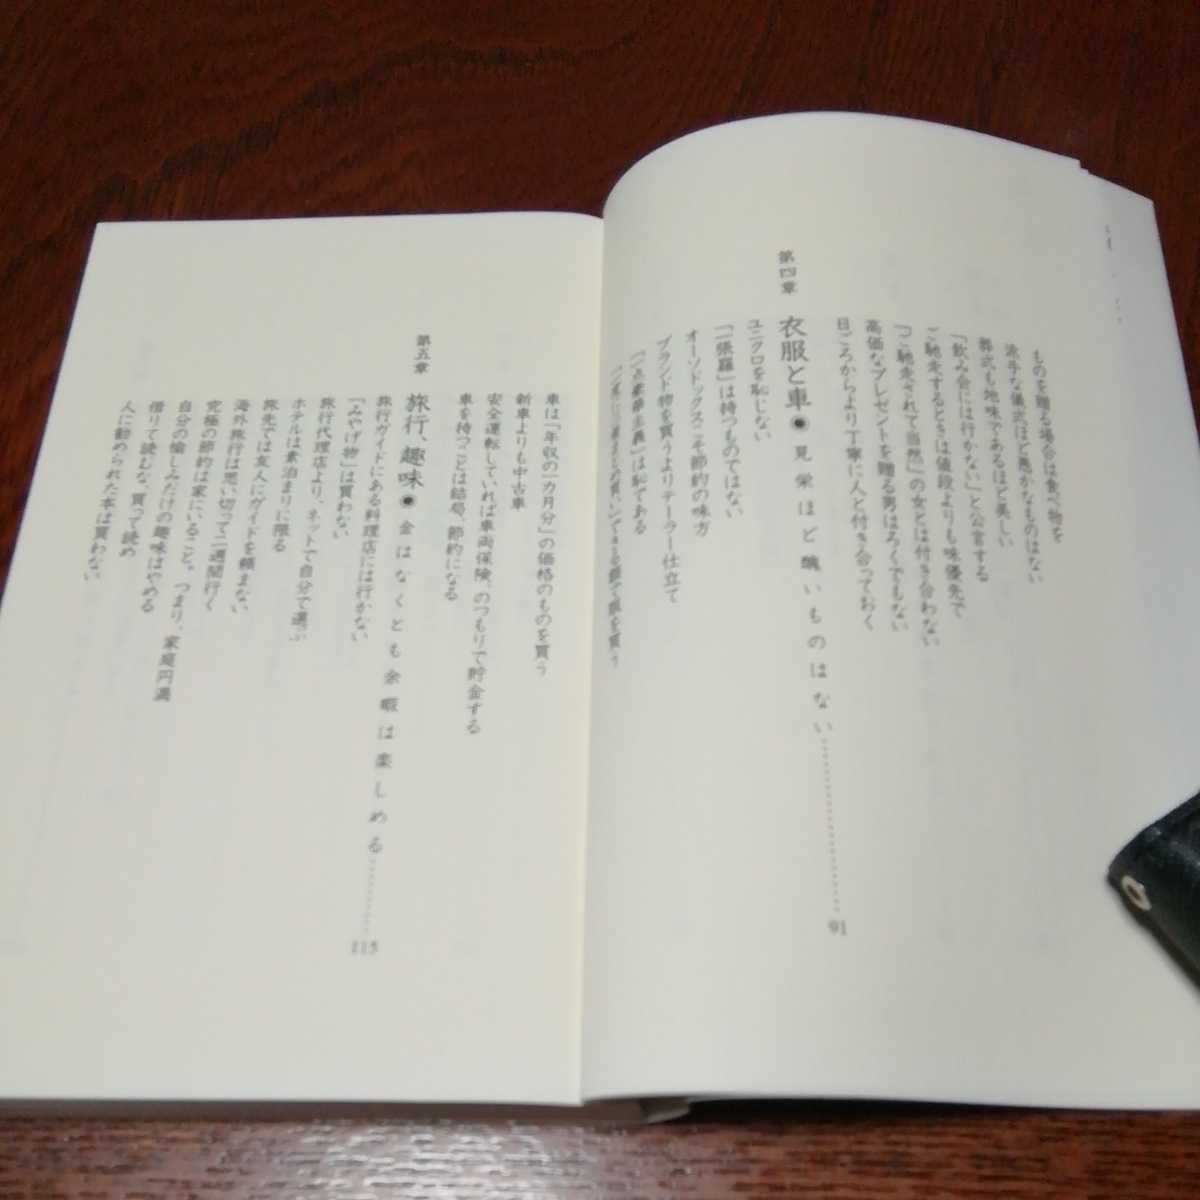 ものを贈る場合は食べ物を
派手な儀式ほど愚かなものはない
葬式も地味であるほど美しい
「飲み会には行かない」と公言する
ご馳走するときは値段よりも味優先で
「ご馳走されて当然」の女とは付き合わない
高価なプレゼントを贈る男はろくでもない
日ごろからより丁寧に人と付き合っておく
第四章 衣服と車●見栄ほど醜いものはない……………91
ユニクロを恥じない
「一張羅」は持つものではない
オーソドックスこそ節約の味方
ブランド物を買うよりテーラー仕立て
「一点豪華主義」は恥である
車は「年収の一カ月分」の価格のものを買う
新車よりも中古車
安全運転していれば車両保険、のつもりで貯金する
車を持つことは結局、節約になる
第五章 旅行、趣味●金はなくとも余暇は楽しめる……………115
旅行ガイドにある料理店には行かない
「みやげ物」は買わない
旅行代理店より、ネットで自分で選ぶ
ホテルは素泊まりに限る
旅先では友人にガイドを頼まない
海外旅行は思い切って二週間行く
究極の節約は家にいること。つまり、家庭円満
自分の愉しみだけの趣味はやめる
借りて読むな、買って読め
人に勧められた本は買わない